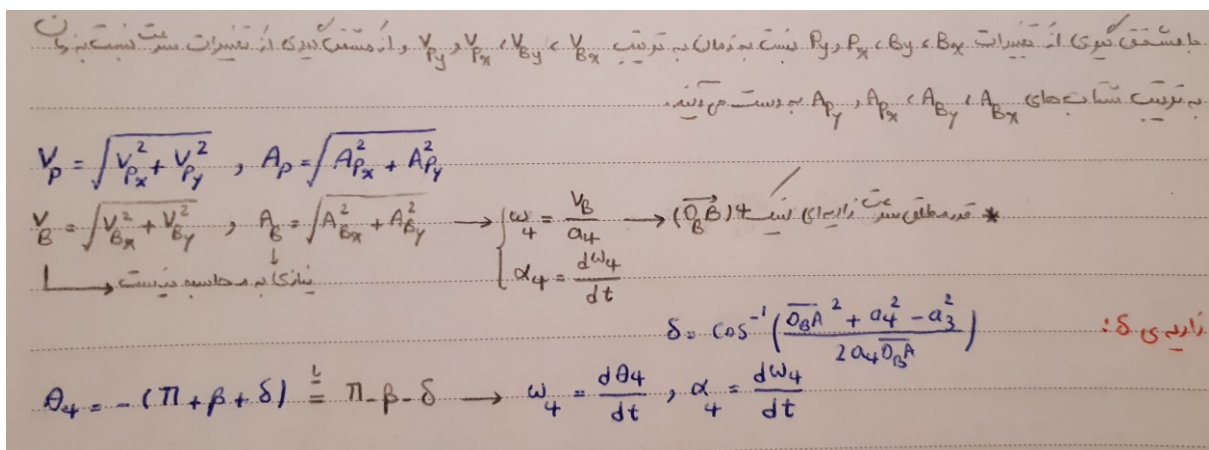 با مشتق گیری از تغییرات Bx ، By ، Px و Py نسبت به زمان به ترتیب V_Bx ، V_By ، V_Px و V_Py و از مشتق گیری از تغییرات سرعت نسبت به زمان
به ترتیب شتاب های A_Bx ، A_By ، A_Px و A_Py به دست می آیند.
V_P = √(V_Px² + V_Py²) , A_P = √(A_Px² + A_Py²)
V_B = √(V_Bx² + V_By²) , A_B = √(A_Bx² + A_By²) → { ω_4 = V_B / a_4 → (O_B B) 4 * قدر مطلق سرعت زاویه ای لینک
α_4 = dω_4 / dt
نیازی به محاسبه نیست
زاویه ی δ: δ = cos⁻¹( (O_BA² + a_4² - a_3²) / (2 a_4 O_BA) )
θ_4 = -(π + β + δ) = π - β - δ → ω_4 = dθ_4 / dt , α_4 = dω_4 / dt